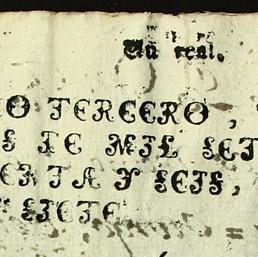 Un real.
O TERCERO,
S DE MIL SET
ENTA Y SEIS,
Y SIETE